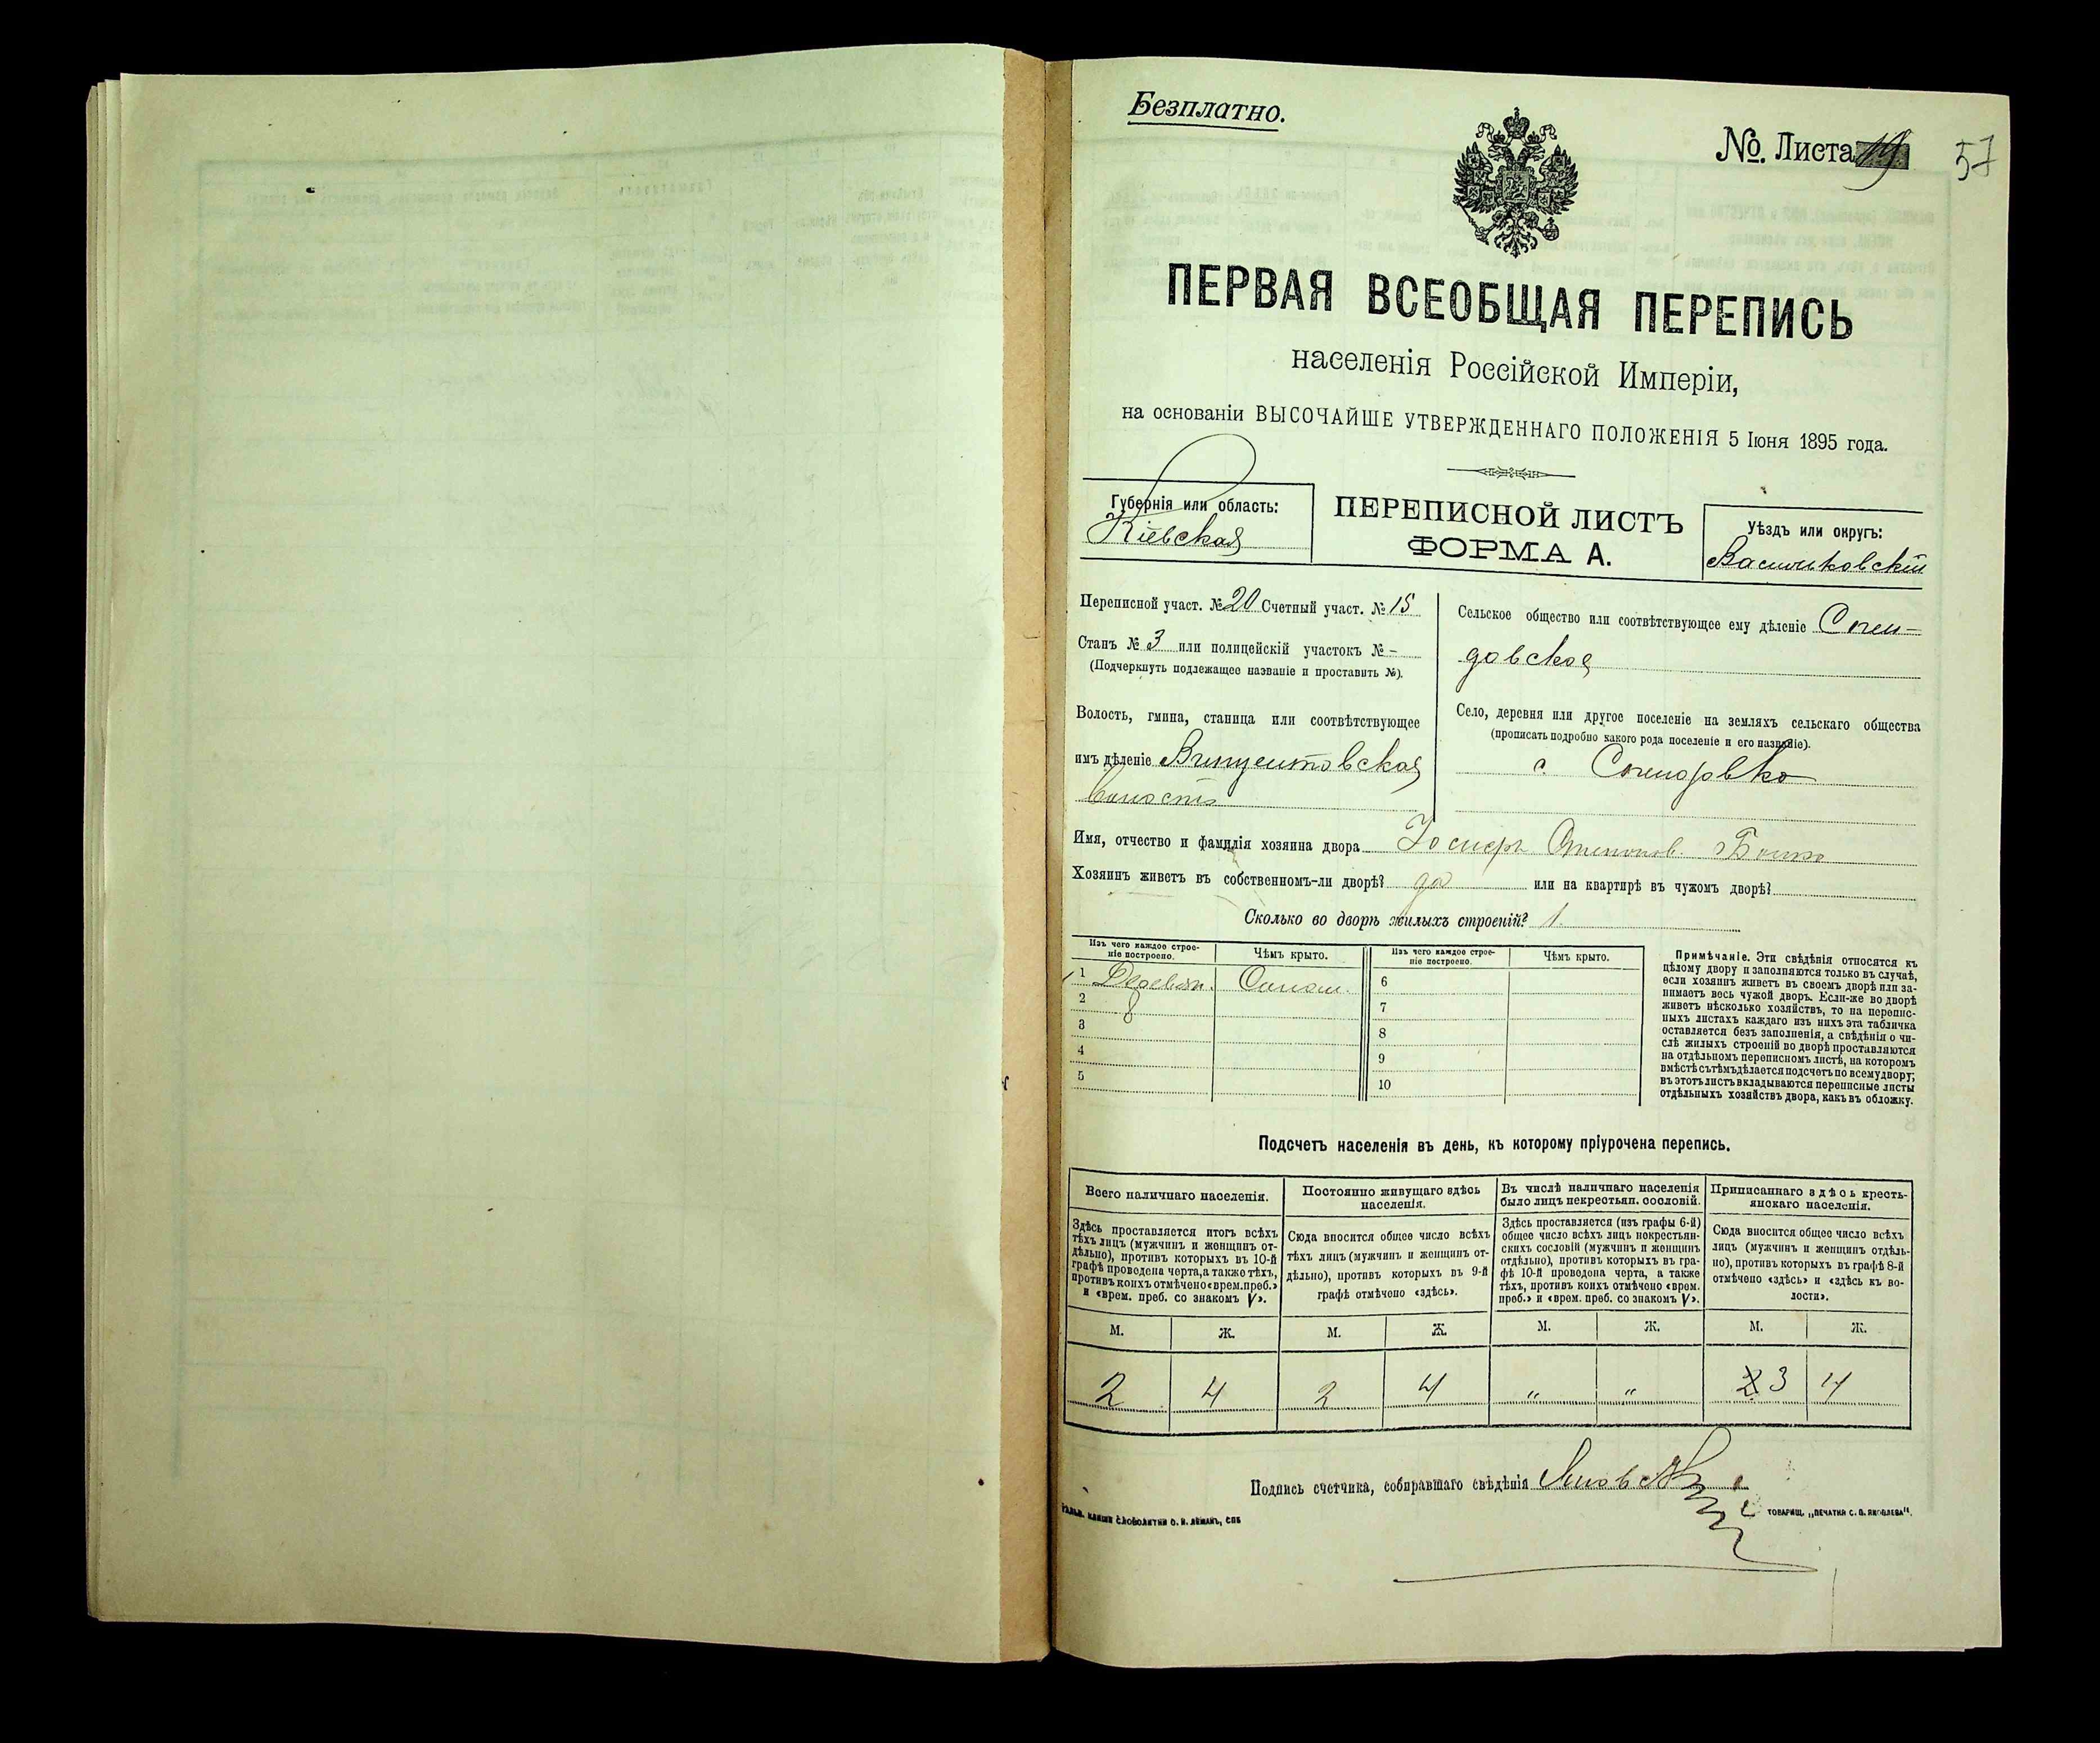 Безплатно.
№. Листа 19
57
ПЕРВАЯ ВСЕОБЩАЯ ПЕРЕПИСЬ
населенія Россійской Имперіи,
на основаніи ВЫСОЧАЙШЕ УТВЕРЖДЕННАГО ПОЛОЖЕНІЯ 5 Іюня 1895 года.
Губернія или область:
Кіевская
ПЕРЕПИСНОЙ ЛИСТЪ
ФОРМА А.
Уѣздъ или округъ:
Васильковскій
Переписной участ. № 20 Счетный участ. № 15
Станъ № 3 или полицейскій участокъ № -
(Подчеркнуть подлежащее названіе и проставить №).
Волость, гмина, станица или соотвѣтствующее
имъ дѣленіе Винцентовская
волость
Сельское общество или соотвѣтствующее ему дѣленіе
довское
Село, деревня или другое поселеніе на земляхъ сельскаго общества
(прописать подробно какого рода поселеніе и его названіе).
с.
Имя, отчество и фамилія хозяина двора Іосифъ
Хозяинъ живетъ въ собственномъ-ли дворѣ? да или на квартирѣ въ чужомъ дворѣ?
Сколько во дворѣ жилыхъ строеній? 1.
Изъ чего каждое строе-
ніе построено.
Чѣмъ крыто.
Изъ чего каждое строе-
ніе построено.
Чѣмъ крыто.
1 Деревян. Солом.
2
3
4
5
6
7
8
9
10
Примѣчаніе. Эти свѣдѣнія относятся къ
цѣлому двору и заполняются только въ случаѣ,
если хозяинъ живетъ въ своемъ дворѣ или за-
нимаетъ весь чужой дворъ. Если-же во дворѣ
живетъ нѣсколько хозяйствъ, то на перепис-
ныхъ листахъ каждаго изъ нихъ эта табличка
оставляется безъ заполненія, а свѣдѣнія о чи-
слѣ жилыхъ строеній во дворѣ проставляются
на отдѣльномъ переписномъ листѣ, на которомъ
вмѣстѣ съ тѣмъ дѣлается подсчетъ по всему двору;
въ этотъ листъ вкладываются переписные листы
отдѣльныхъ хозяйствъ двора, какъ въ обложку.
Подсчетъ населенія въ день, къ которому пріурочена перепись.
Всего наличнаго населенія.
Здѣсь проставляется итогъ всѣхъ
тѣхъ лицъ (мужчинъ и женщинъ от-
дѣльно), противъ которыхъ въ 10-й
графѣ проведена черта, а также тѣхъ,
противъ коихъ отмѣчено «врем. преб.»
и «врем. преб. со знакомъ V».
Постоянно живущаго здѣсь
населенія.
Сюда вносится общее число всѣхъ
тѣхъ лицъ (мужчинъ и женщинъ от-
дѣльно), противъ которыхъ въ 9-й
графѣ отмѣчено «здѣсь».
Въ числѣ наличнаго населенія
было лицъ некрестьян. сословій.
Здѣсь проставляется (изъ графы 6-й)
общее число всѣхъ лицъ некрестьян-
скихъ сословій (мужчинъ и женщинъ
отдѣльно), противъ которыхъ въ гра-
фѣ 10-й проведена черта, а также
тѣхъ, противъ коихъ отмѣчено «врем.
преб.» и «врем. преб. со знакомъ V».
Приписаннаго здѣсь кресть-
янскаго населенія.
Сюда вносится общее число всѣхъ
лицъ (мужчинъ и женщинъ отдѣль-
но), противъ которыхъ въ графѣ 8-й
отмѣчено «здѣсь» и «здѣсь къ во-
лости».
М. Ж. М. Ж. М. Ж. М. Ж.
2 4 2 4 " " 2 3 4
Подпись счетчика, собиравшаго свѣдѣнія
ТОВАРИЩ. „ПЕЧАТНЯ С. П. ЯКОВЛЕВА".